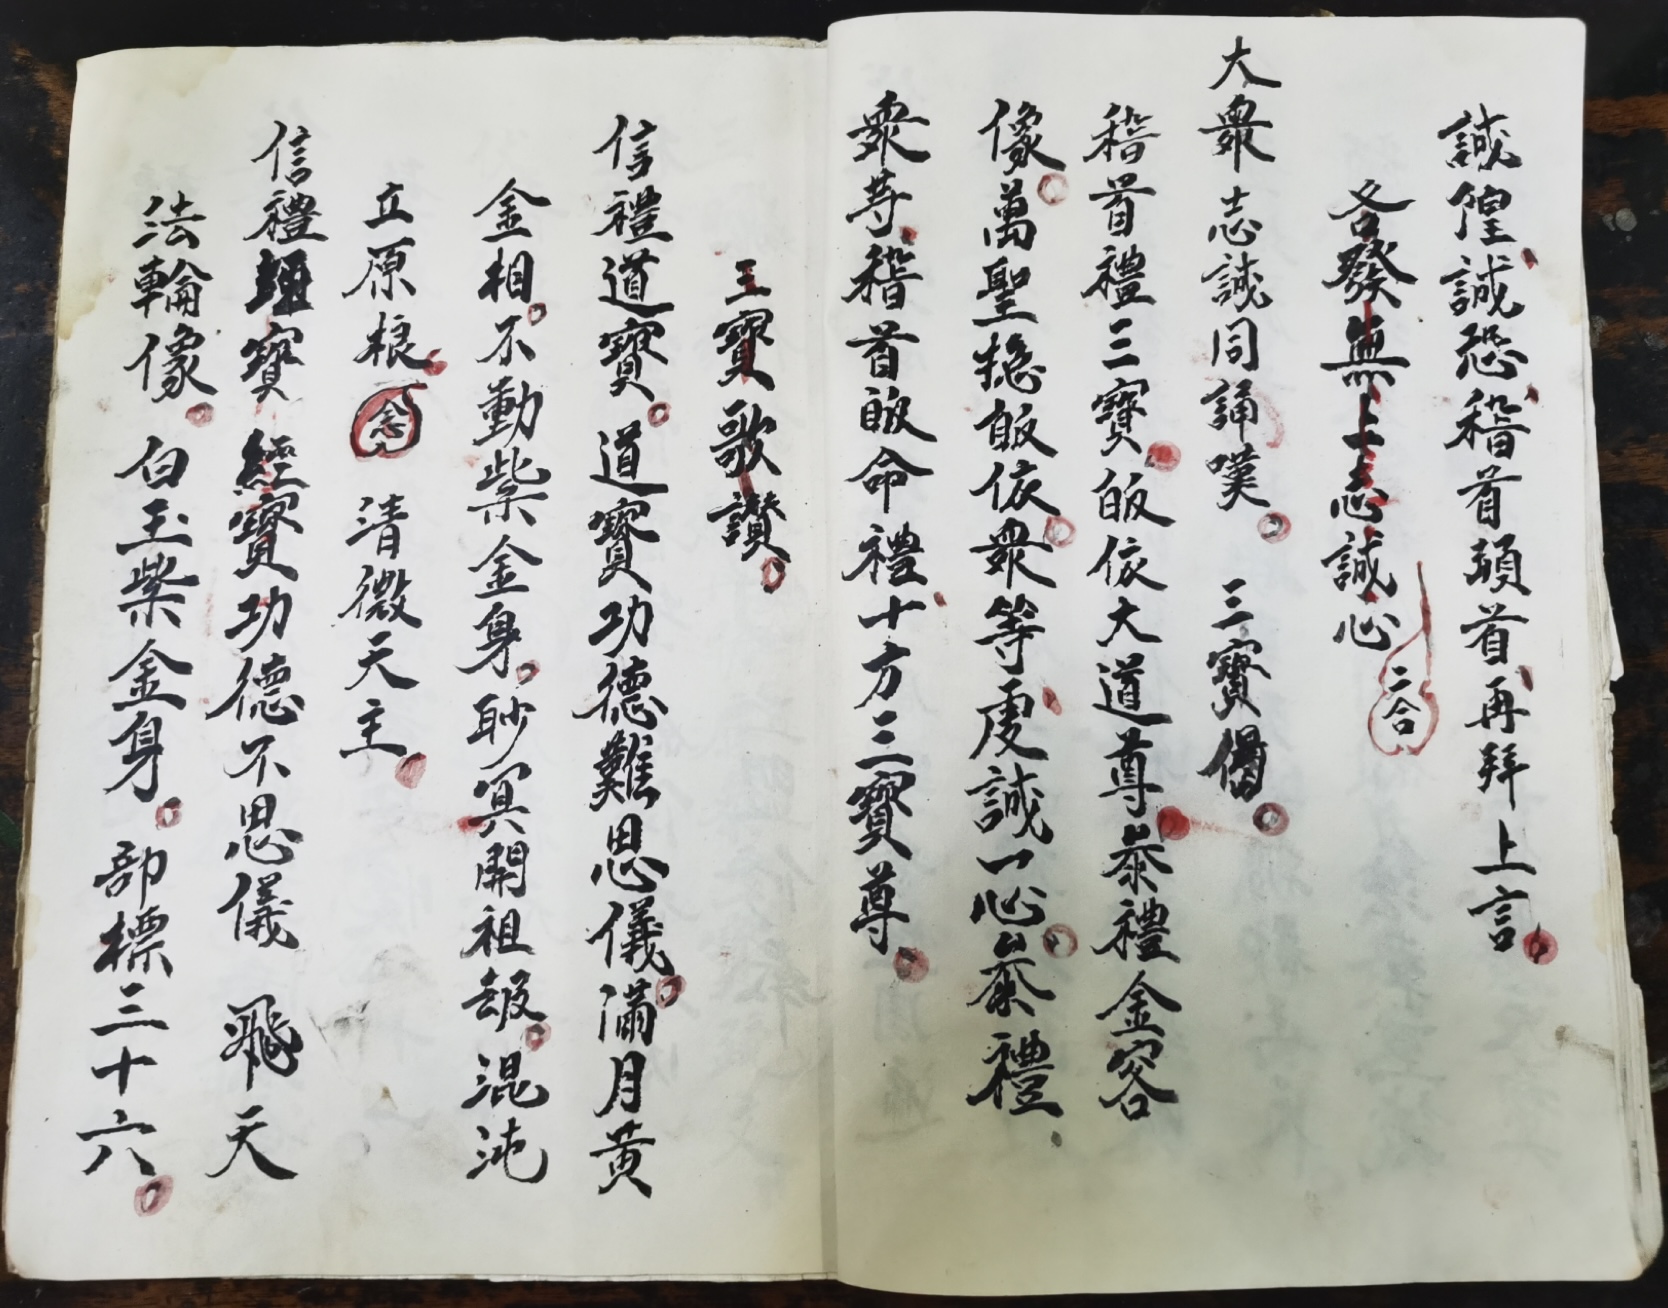 誠惶誠恐稽首頓首再拜上言
各發無上志誠心 二合
大衆志誠同誦嘆 三寳偈
稽首禮三寳皈依大道尊叅禮金容
像萬聖揔皈依衆等虔誠一心叅禮
衆等稽首皈命禮十方三寳尊
三寳歌讃
信禮道寳道寳功德難思儀滿月黄
金相不動紫金身眇冥開祖劫混沌
立原根 念 清微天主
信禮經寳經寳功德不思儀 飛天
法輪像白玉紫金身部標三十六